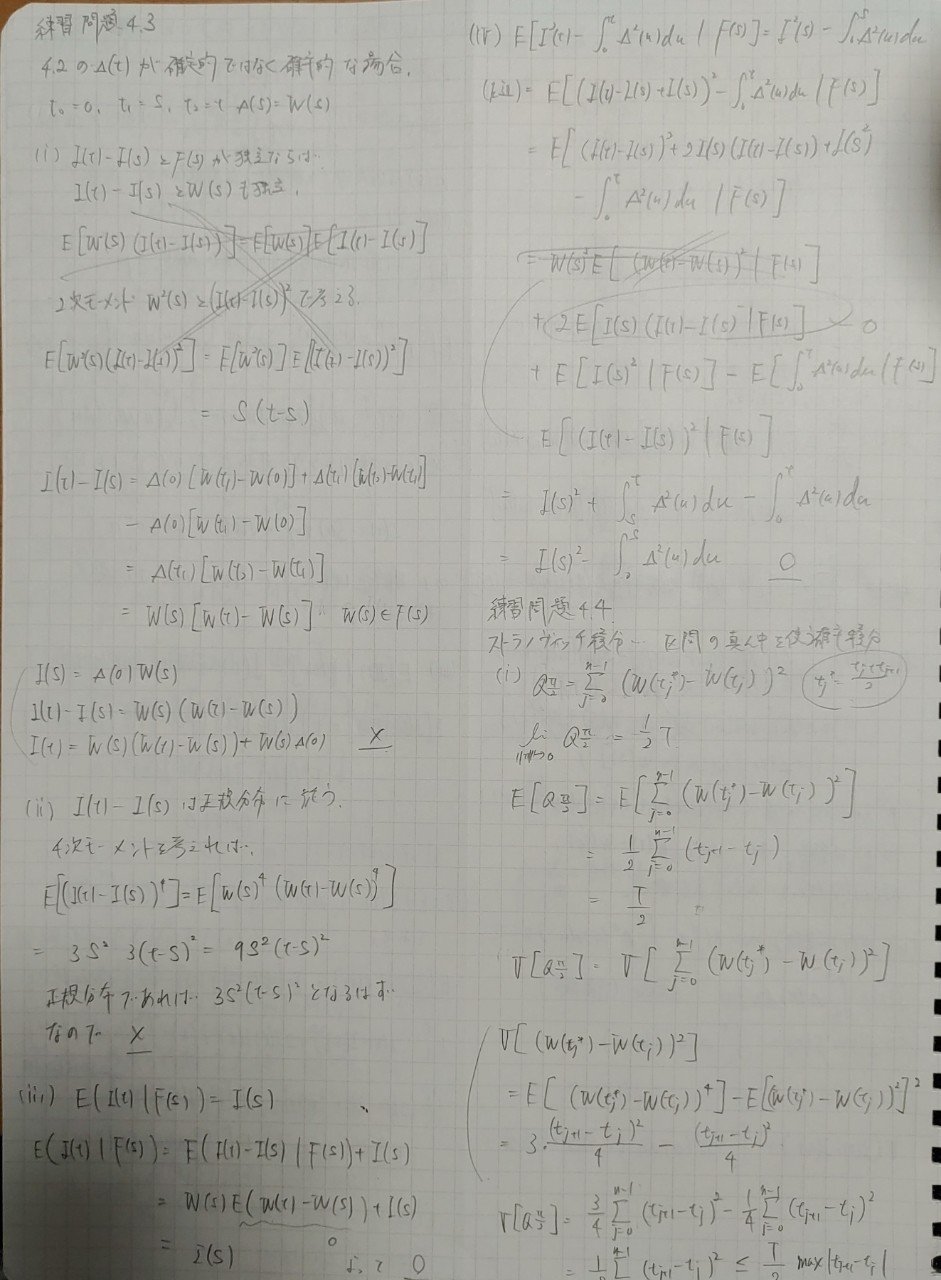 練習問題 4.3
4.2 の Δ(t) が 確定的ではなく確率的な場合.
t₀ = 0, t₁ = s, t₂ = t Δ(s) = W(s)
(i) I(t) - I(s) と F(s) が独立ならば..
I(t) - I(s) と W(s) も独立.
E[W(s) (I(t) - I(s))] = E[W(s)] E[I(t) - I(s)]
2次モーメント W²(s) と (I(t) - I(s))² で考える.
E[W²(s)(I(t) - I(s))²] = E[W²(s)] E[(I(t) - I(s))²]
= S(t-s)
I(t) - I(s) = Δ(0) [W(t₁) - W(0)] + Δ(t₁) [W(t₂) - W(t₁)]
- Δ(0) [W(t₁) - W(0)]
= Δ(t₁) [W(t₂) - W(t₁)]
= W(s) [W(t) - W(s)] W(s) ∈ F(s)
I(s) = Δ(0) W(s)
I(t) - I(s) = W(s) (W(t) - W(s))
I(t) = W(s) (W(t) - W(s)) + W(s) Δ(0) ×
(ii) I(t) - I(s) は正規分布に従う.
4次モーメントを考えれば..
E[(I(t) - I(s))⁴] = E[W(s)⁴ (W(t) - W(s))⁴]
= 3s² 3(t-s)² = 9s²(t-s)²
正規分布であれば 3s²(t-s)² となるはず
なので ×
(iii) E(I(t) | F(s)) = I(s)
E(I(t) | F(s)) = E(I(t) - I(s) | F(s)) + I(s)
= W(s) E(W(t) - W(s)) + I(s)
0
= I(s)
よって O
(iv) E[I²(t) - ∫₀ᵗ Δ²(u)du | F(s)] = I²(s) - ∫₀ˢ Δ²(u)du
= E[(I(t) - I(s) + I(s))² - ∫₀ᵗ Δ²(u)du | F(s)]
= E[(I(t) - I(s))² + 2I(s) (I(t) - I(s)) + I(s)²
- ∫₀ᵗ Δ²(u) du | F(s)]
= W(s)² E[(W(t) - W(s))² | F(s)]
+ 2E[I(s) (I(t) - I(s) | F(s)] 0
+ E[I(s)² | F(s)] - E[∫₀ᵗ Δ²(u)du | F(s)]
E[(I(t) - I(s))² | F(s)]
= I(s)² + ∫ₛᵗ Δ²(u) du - ∫₀ᵗ Δ²(u)du
= I(s)² - ∫₀ˢ Δ²(u)du O
練習問題 4.4
ストラノヴィッチ積分… 区間の真ん中を使う確率積分
(i) Q_{π/2} = Σ_{j=0}^{n-1} (W(tⱼ*) - W(tⱼ))² tⱼ* = (tⱼ + tⱼ₊₁)/2
lim_{‖π‖→0} Q_{π/2} = 1/2 T
E[Q_{π/2}] = E[Σ_{j=0}^{n-1} (W(tⱼ*) - W(tⱼ))²]
= 1/2 Σ_{j=0}^{n-1} (tⱼ₊₁ - tⱼ)
= T/2
V[Q_{π/2}] = V[Σ_{j=0}^{n-1} (W(tⱼ*) - W(tⱼ))²]
V[(W(tⱼ*) - W(tⱼ))²]
= E[(W(tⱼ*) - W(tⱼ))⁴] - E[(W(tⱼ*) - W(tⱼ))²]²
= 3·(tⱼ₊₁ - tⱼ)²/4 - (tⱼ₊₁ - tⱼ)²/4
V[Q_{π/2}] = 3/4 Σ_{j=0}^{n-1} (tⱼ₊₁ - tⱼ)² - 1/4 Σ_{j=0}^{n-1} (tⱼ₊₁ - tⱼ)²
= 1/2 Σ^{n-1} (tⱼ₊₁ - tⱼ)² ≤ T/2 max|tⱼ₊₁ - tⱼ|